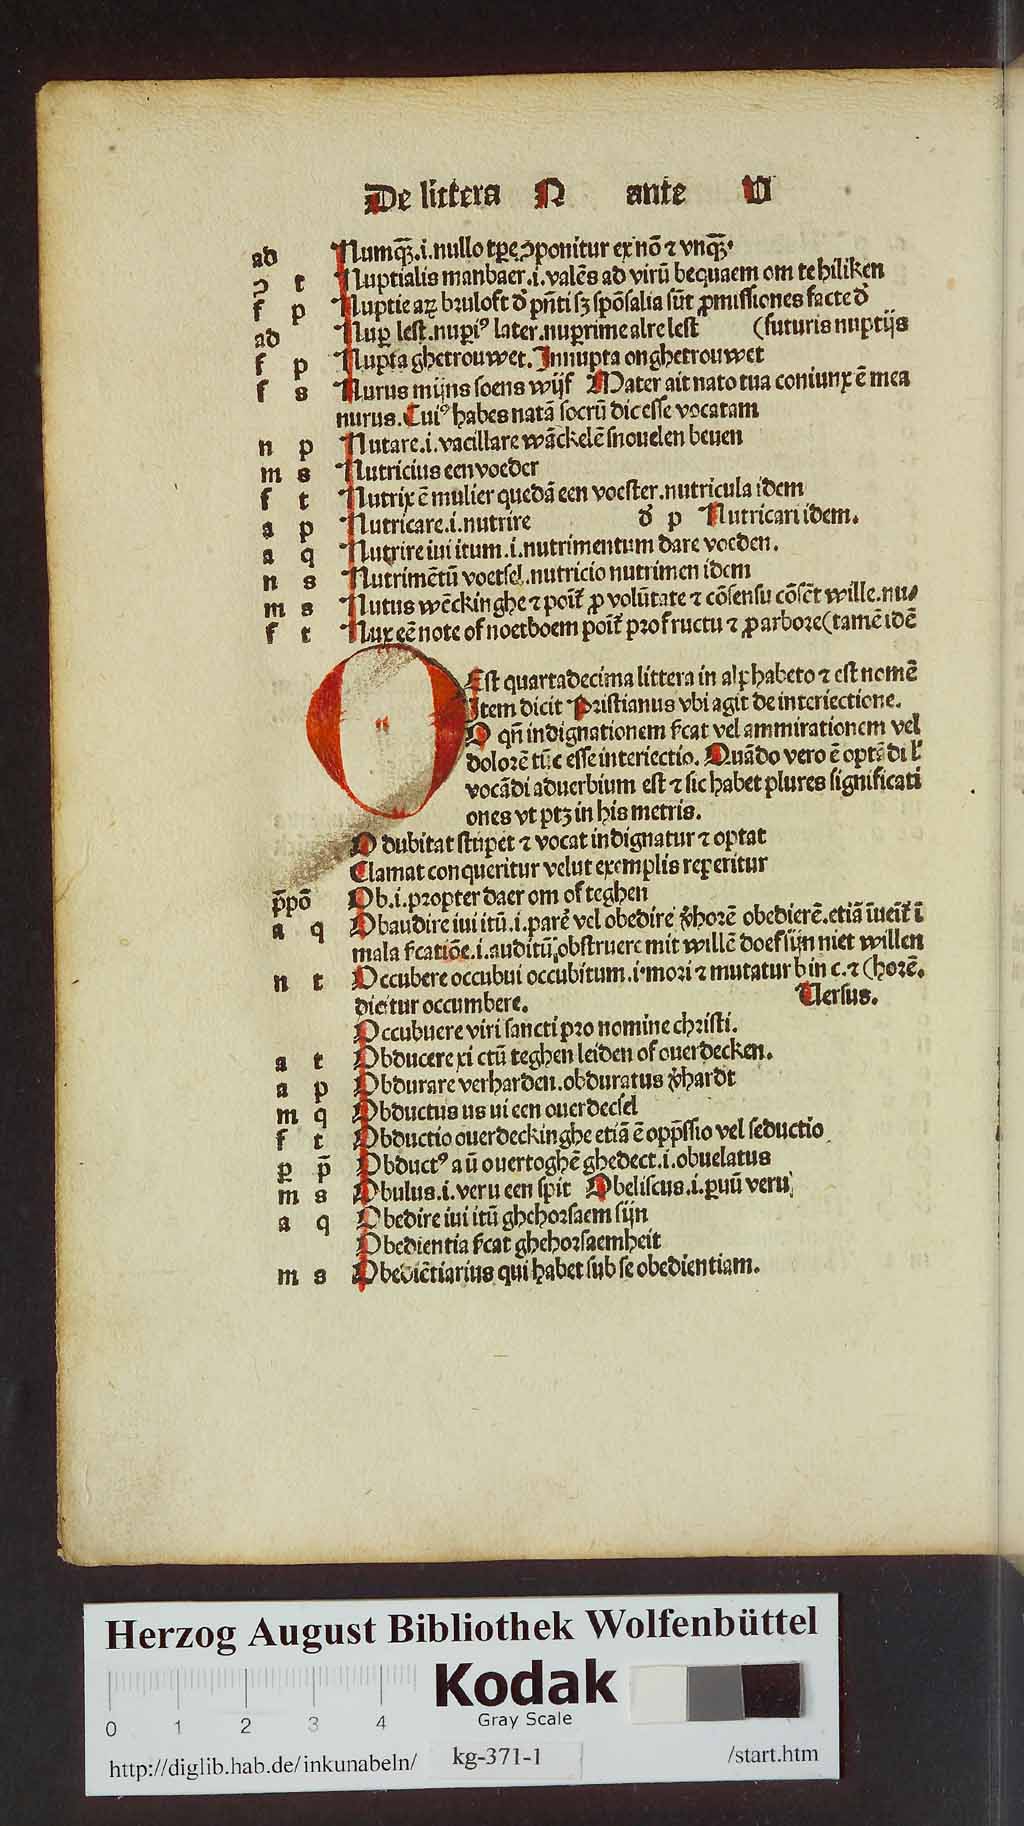 De littera N ante U
ad Numqꝫ.i.nullo tꝑe ꝯponitur ex nō ⁊ vnqꝫ.
ꝯ t Nuptialis manbaer.i.valēs ad virū bequaem om te hiliken
f p Nuptie aꝝ bruloft đ pn̄ti sꝫ spōsalia sūt ꝓmissiones facte đ
ad Nuꝑ lest.nuꝑiꝰ later.nuꝑrime alre lest (futuris nuptijs
f p Nupta ghetrouwet. Innupta onghetrouwet
f s Nurus mijns soens wijf Mater ait nato tua coniunx ē mea
nurus. Cuiꝰ habes natā socrū dic esse vocatam
n p Nutare.i.vacillare wāckelē snouelen beuen
m s Nutricius een voeder
f t Nutrix ē mulier quedā een voester.nutricula idem
a p Nutricare.i.nutrire đ p Nutricari idem.
a q Nutrire iui itum.i.nutrimentum dare voeden.
n s Nutrimētū voetsel.nutricio nutrimen idem
m s Nutus wēckinghe ⁊ poit̄ ꝓ volūtate ⁊ cōsensu cōsēt wille.nu⸗
f t Nux eē note of noetboem poit̄ pro fructu ⁊ ꝓ arbore (tamē idē
O Est quartadecima littera in alphabeto ⁊ est nomē
Item dicit Pristianus vbi agit de interiectione.
O qn̄ indignationem ſ̄cat vel ammirationem vel
dolorē tūc esse interiectio. Quādo vero ē optādi l'
vocādi aduerbium est ⁊ sic habet plures significati
ones vt ptꝫ in his metris.
O dubitat stupet ⁊ vocat indignatur ⁊ optat
Clamat conqueritur velut exemplis reperitur
p̄pō Ob.i.propter daer om of teghen
a q Obaudire iui itū.i.parē vel obedire v̄horē obedierē.etiā īueit̄ ī
mala ſ̄catiōe.i.auditū obstruere mit willē doef sijn niet willen
n t Occubere occubui occubitum.i.mori ⁊ mutatur b in c.⁊ (horē.
dicitur occumbere. Uersus.
Occubuere viri sancti pro nomine christi.
a t Obducere xi ctū teghen leiden of ouerdecken.
a p Obdurare verharden.obduratus v̄hardt
m q Obductus us ui een ouerdecsel
f t Obductio ouerdeckinghe etiā ē opp̄ssio vel seductio
ꝑ p̄ Obductꝰ a ū ouertoghē ghedect.i.obuelatus
m s Obulus.i.veru een spit Obeliscus.i.ꝑuū veru
a q Obedire iui itū ghehorsaem sijn
Obedientia ſ̄cat ghehorsaemheit
m s Obediētiarius qui habet sub se obedientiam.
Herzog August Bibliothek Wolfenbüttel
Kodak
Gray Scale
0 1 2 3 4
http://diglib.hab.de/inkunabeln/ kg-371-1 /start.htm